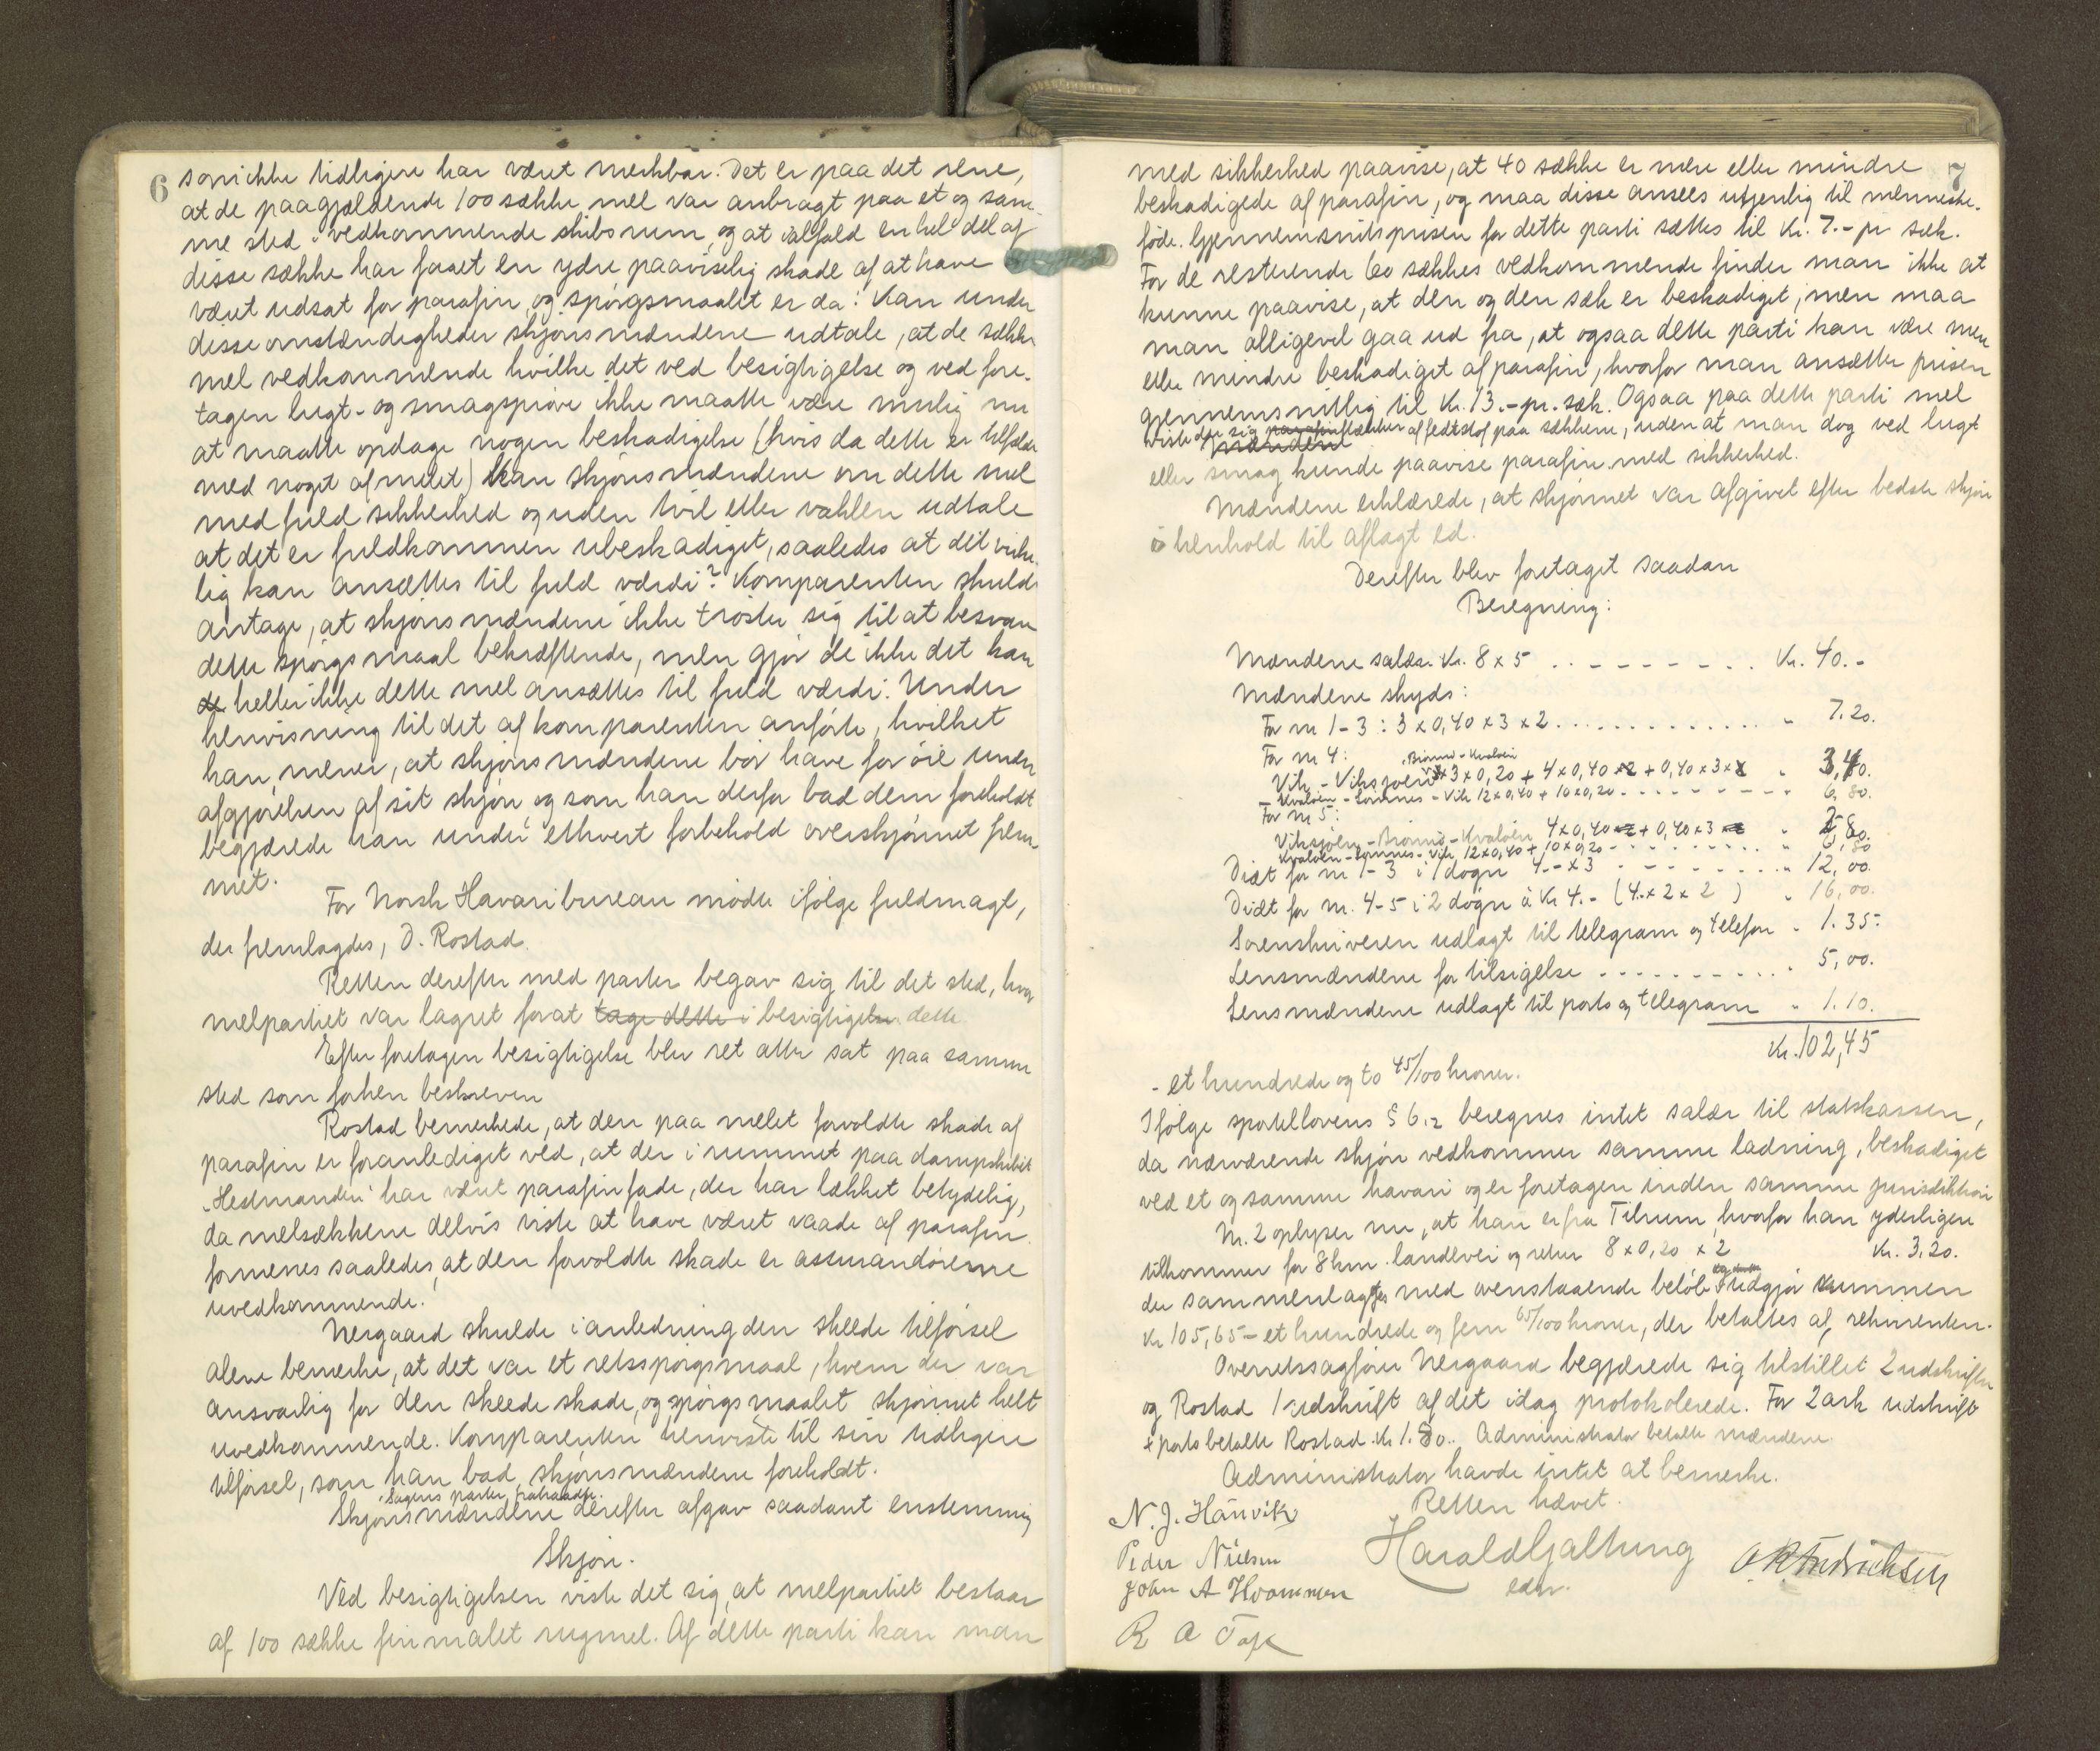 6
som ikke tidligere har været merkbar. Det er paa det rene,
at de paagjældende 100 sække mel var anbragt paa et og sam-
me sted i vedkommende skibsrum, og at ialfald en hel del af
disse sække har faaet en ydre paaviselig skade af at have
været udsat for parafin, og spørgsmaalet er da: Kan under
disse omstændigheder skjønsmændene udtale, at de sække
mel vedkommende hvilke det ved besigtigelse og ved fore-
tagen lugt- og smagsprøve ikke maatte være mulig nu
at maatte opdage nogen beskadigelse (hvis da dette er tilfælde
med noget af melet) kan skjønsmændene om dette mel
med fuld sikkerhed og uden tvil eller vaklen udtale
at det er fuldkommen ubeskadiget, saaledes at det virke-
lig kan ansættes til fuld værdi? Komparenten skulde
antage, at skjønsmændene ikke trøster sig til at besvare
dette spørgsmaal bekræftende, men gjør de ikke det kan
de heller ikke dette mel ansættes til fuld værdi. Under
henvisning til det af komparenten anførte, hvilket
han mener, at skjønsmændene bør have for øie under
afgjørelsen af sit skjøn, og som han derfor bad dem foreholdt
begjærede han under ethvert forbehold overskjønnet frem-
met.
For Norsk Havaribureau mødte ifølge fuldmagt,
der fremlagdes, D. Rostad.
Retten derefter med parter begav sig til det sted, hvor
melpartiet var lagret forat tage dette i besigtigelse dette.
Efter foretagen besigtigelse blev ret atter sat paa samme
sted som forhen beskreven
Rostad bemerkede, at den paa melet forvoldte skade af
parafin er foranlediget ved, at der i rummet paa dampskibet
"Hestmanden" har været parafinfade, der har lækket betydelig,
da melsækkene delvis viste at have været vaade af parafin.
formenes saaledes, at den forvoldte skade er assurandørerne
uvedkommende.
Nergaard skulde i anledning den skeede tilførsel
alene bemerke, at det var et retsspørgsmaal, hvem der var
ansvarlig for den skeede skade, og spørgsmaalet skjønnet helt
uvedkommende. Komparenten henviste til sin tidligere
tilførsel, som han bad skjønsmændene foreholdt.
Sagens parter fratraadte.
Skjønsmændene derefter afgav saadant enstemmig
Skjøn.
Ved besigtigelsen viste det sig, at melpartiet bestaar
af 100 sække finmalet rugmel. Af dette parti kan man
7
med sikkerhed paavise, at 40 sække er mere eller mindre
beskadigede af parafin, og maa disse ansees utjenlig til menneske-
føde. Gjennemsnitsprisen for dette parti sættes til Kr. 7.- pr sæk.
For de resterende 60 sækkes vedkommende finder man ikke at
kunne paavise, at den og den sæk er beskadiget; men maa
man alligevel gaa ud fra, at ogsaa dette parti kan være mere
eller mindre beskadiget af parafin, hvorfor man ansætter prisen
gjennemsnitlig til Kr. 13.- pr. sæk. Ogsaa paa dette parti mel
viste der sig parafinflækker af fedtstof paa sækkene, uden at man dog ved lugt
Mændene
eller smag kunde paavise parafin med sikkerhed.
Mændene erklærede, at skjønnet var afgivet efter bedste skjøn
i henhold til aflagt ed.
Derefter blev foretaget saadan
Beregning:
Mændene salær Kr. 8 x 5 . . - - - - - - - . Kr. 40.-
Mændene skyds:
For nr 1-3 : 3 x 0,40 x 3 x 2 . . . . . . . . . . . . . " 7.20.
For nr 4: , Brønnø-Kvaløen
Vik - Viksjøen 3 x 0,20 + 4 x 0,40 x 2 + 0,40 x 3 x 2 " 3,40.
- Kvaløen - Sømnes - Vik 12 x 0,40 + 10 x 0,20 - - - - - - - - " 6,80.
For nr 5:
Viksjøen - Brønnø - Kvaløen 4 x 0,40 x 2 + 0,40 x 3 x 2 " 2,80.
Kvaløen - Sømnes - Vik 12 x 0,40 + 10 x 0,20 - - - - - - - " 6,80
Diæt for nr 1-3 i 1 døgn 4.- x 3 - - - - - - " 12,00.
Diæt for nr. 4-5 i 2 døgn à Kr 4.- (4 x 2 x 2) " 16,00.
Sorenskriveren udlagt til telegram og telefon " 1.35.
Lensmændene for tilsigelse - - - - - - - - - - " 5,00.
Lensmændene udlagt til porto og telegram " 1.10.
Kr. 102,45
- et hundrede og to 45/100 kroner.
Ifølge sportellovens § 6.12 beregnes intet salær til statskassen,
da nærværende skjøn vedkommer samme ladning, beskadiget
ved et og samme havari og er foretagen inden samme jurisdiktion
Nr. 2 oplyser nu, at han er fra Tilrem, hvorfor han yderligere
tilkommer for 8 km. landevei og retur 8 x 0,20 x 2 Kr. 3.20.
der sammenlagdes med ovenstaaende beløb udgjør summen
Kr 105,65 - et hundrede og fem 65/100 kroner, der betaltes af rekvirenten.
Overretssagfører Nergaard begjærede sig tilstillet 2 udskrifter
og Rostad 1 udskrift af det idag protokolerede. For 2 ark udskrift
+ porto betalte Rostad Kr 1.80. Administrator betalte mændene.
Administrator havde intet at bemerke.
Retten hævet.
N. J. Hanvik
Haraldsaltung
Peder Nielsen
John A Hvommen
edsv.
R A Tofte